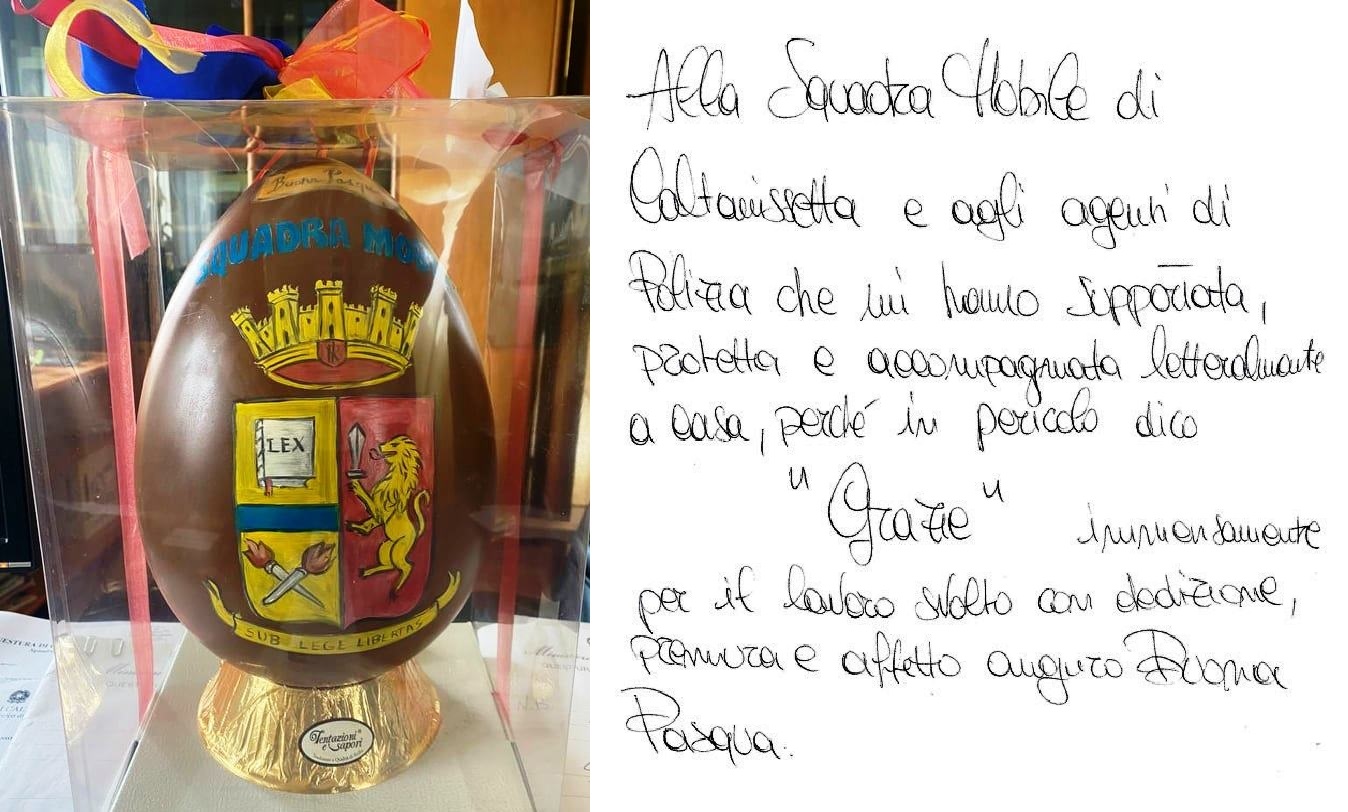 Buona Pasqua
SQUADRA MOB
LEX
SUB LEGE LIBERTAS
Tentazioni
e Sapori
Alla Squadra Mobile di
Caltanissetta e agli agenti di
Polizia che mi hanno supportata,
protetta e accompagnata letteralmente
a casa, perché in pericolo dico
"Grazie" immensamente
per il lavoro svolto con dedizione,
premura e affetto auguro Buona
Pasqua.